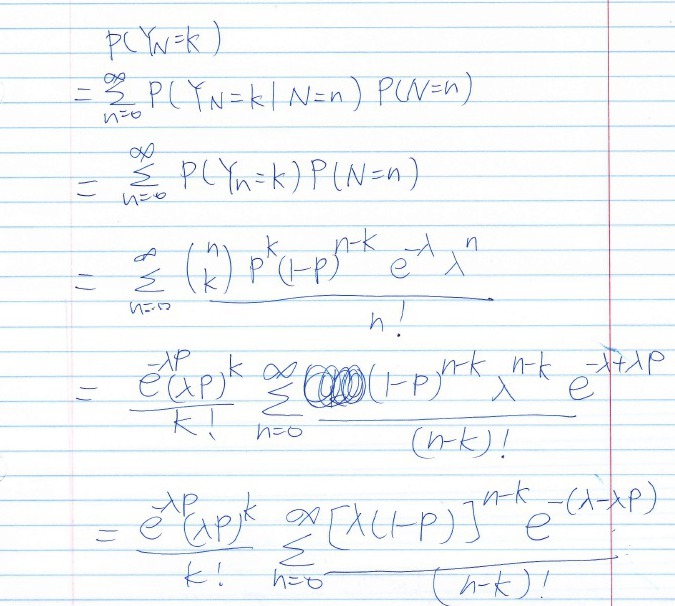 P(Y_N=k)
= ∑_{n=0}^{∞} P(Y_N=k|N=n) P(N=n)
= ∑_{n=0}^{∞} P(Y_n=k) P(N=n)
= ∑_{n=0}^{∞} \binom{n}{k} p^k (1-p)^{n-k} e^{-λ} λ^n / n!
= e^{-λp}(λp)^k / k! ∑_{n=0}^{∞} (1-p)^{n-k} λ^{n-k} e^{-λ+λp} / (n-k)!
= e^{-λp}(λp)^k / k! ∑_{n=0}^{∞} [λ(1-p)]^{n-k} e^{-(λ-λp)} / (n-k)!